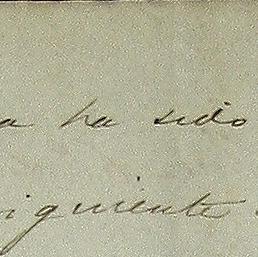 a ha sido
iguiente